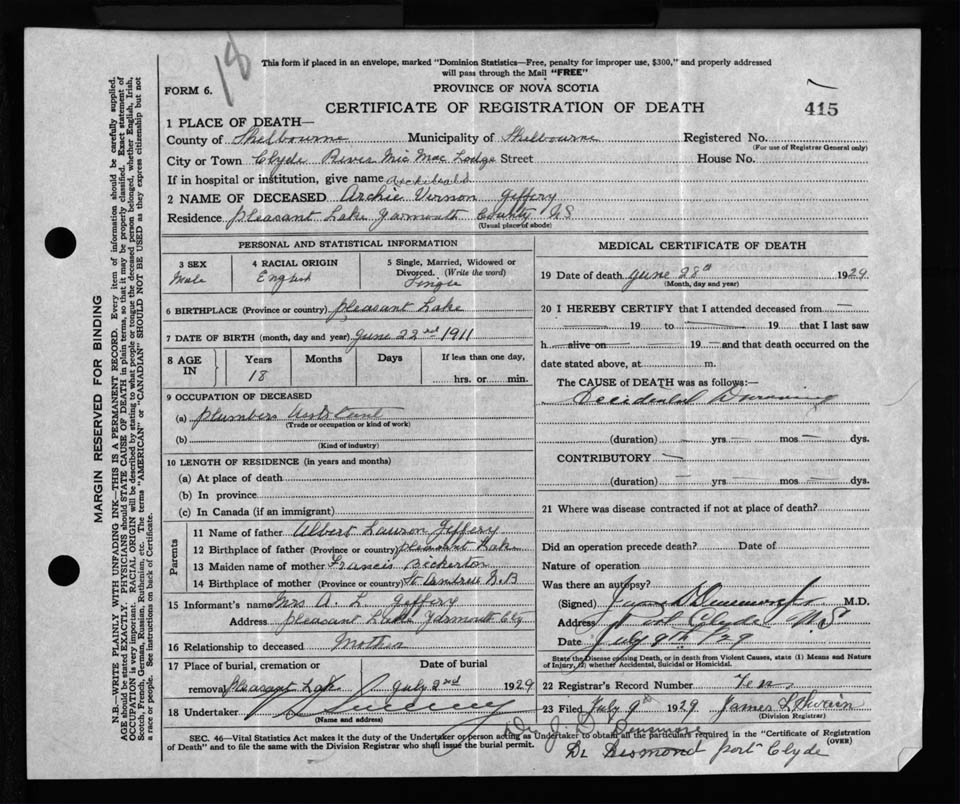 18
This form if placed in an envelope, marked "Dominion Statistics—Free, penalty for improper use, $300," and properly addressed
will pass through the Mail "FREE"
FORM 6.
PROVINCE OF NOVA SCOTIA
CERTIFICATE OF REGISTRATION OF DEATH
415
1 PLACE OF DEATH—
County of Shelbourne Municipality of Shelbourne Registered No.
(For use of Registrar General only)
City or Town Clyde River Mic Mac Lodge Street House No.
If in hospital or institution, give name
Archibald
2 NAME OF DECEASED Archie Vernon Jeffery
Residence Pleasant Lake Yarmouth County NS
(Usual place of abode)
PERSONAL AND STATISTICAL INFORMATION
3 SEX
Male
4 RACIAL ORIGIN
English
5 Single, Married, Widowed or
Divorced. (Write the word)
Single
6 BIRTHPLACE (Province or country) Pleasant Lake
7 DATE OF BIRTH (month, day and year) June 22nd 1911
8 AGE IN
Years
18
Months
Days
If less than one day,
hrs. or min.
9 OCCUPATION OF DECEASED
(a) Plumbers Assistant
(Trade or occupation or kind of work)
(b)
(Kind of industry)
10 LENGTH OF RESIDENCE (in years and months)
(a) At place of death
(b) In province
(c) In Canada (if an immigrant)
Parents
11 Name of father Albert Jeffery
12 Birthplace of father (Province or country) Pleasant Lake
13 Maiden name of mother Francis Beckerton
14 Birthplace of mother (Province or country) St Andrew N.B
15 Informant's name Mrs A. L Jeffery
Address Pleasant Lake Yarmouth Cty
16 Relationship to deceased Mother
17 Place of burial, cremation or
removal Pleasant Lake
Date of burial
July 2nd 1929
18 Undertaker
(Name and address)
MEDICAL CERTIFICATE OF DEATH
19 Date of death June 28th 1929
(Month, day and year)
20 I HEREBY CERTIFY that I attended deceased from
19 to 19 that I last saw
h alive on 19 and that death occurred on the
date stated above, at m.
The CAUSE of DEATH was as follows:—
Accidental Drowning
(duration) yrs mos dys.
CONTRIBUTORY
(duration) yrs mos dys.
21 Where was disease contracted if not at place of death?
Did an operation precede death? Date of
Nature of operation
Was there an autopsy?
(Signed) M.D.
Address Port Clyde N.S
Date July 9th 1929
State the Disease causing Death, or in death from Violent Causes, state (1) Means and Nature
of Injury, (2) whether Accidental, Suicidal or Homicidal.
22 Registrar's Record Number Ten
23 Filed July 9th 1929 James L Swain
(Division Registrar)
SEC. 46—Vital Statistics Act makes it the duty of the Undertaker or person acting as Undertaker to obtain all the particulars required in the "Certificate of Registration
of Death" and to file the same with the Division Registrar who shall issue the burial permit.
(OVER)
Dr Desmond Port Clyde
MARGIN RESERVED FOR BINDING
N.B.—WRITE PLAINLY WITH UNFADING INK—THIS IS A PERMANENT RECORD. Every item of information should be carefully supplied.
AGE should be stated EXACTLY. PHYSICIANS should STATE CAUSE OF DEATH in plain terms, so that it may be properly classified. Exact statement of
OCCUPATION is very important. RACIAL ORIGIN will be described by stating to what people or tongue the deceased person belonged, whether English, Irish,
Scotch, French, German, Russian, Ruthenian, etc. The terms "AMERICAN" or "CANADIAN" SHOULD NOT BE USED as they express citizenship but not
a race or people. See instructions on back of Certificate.